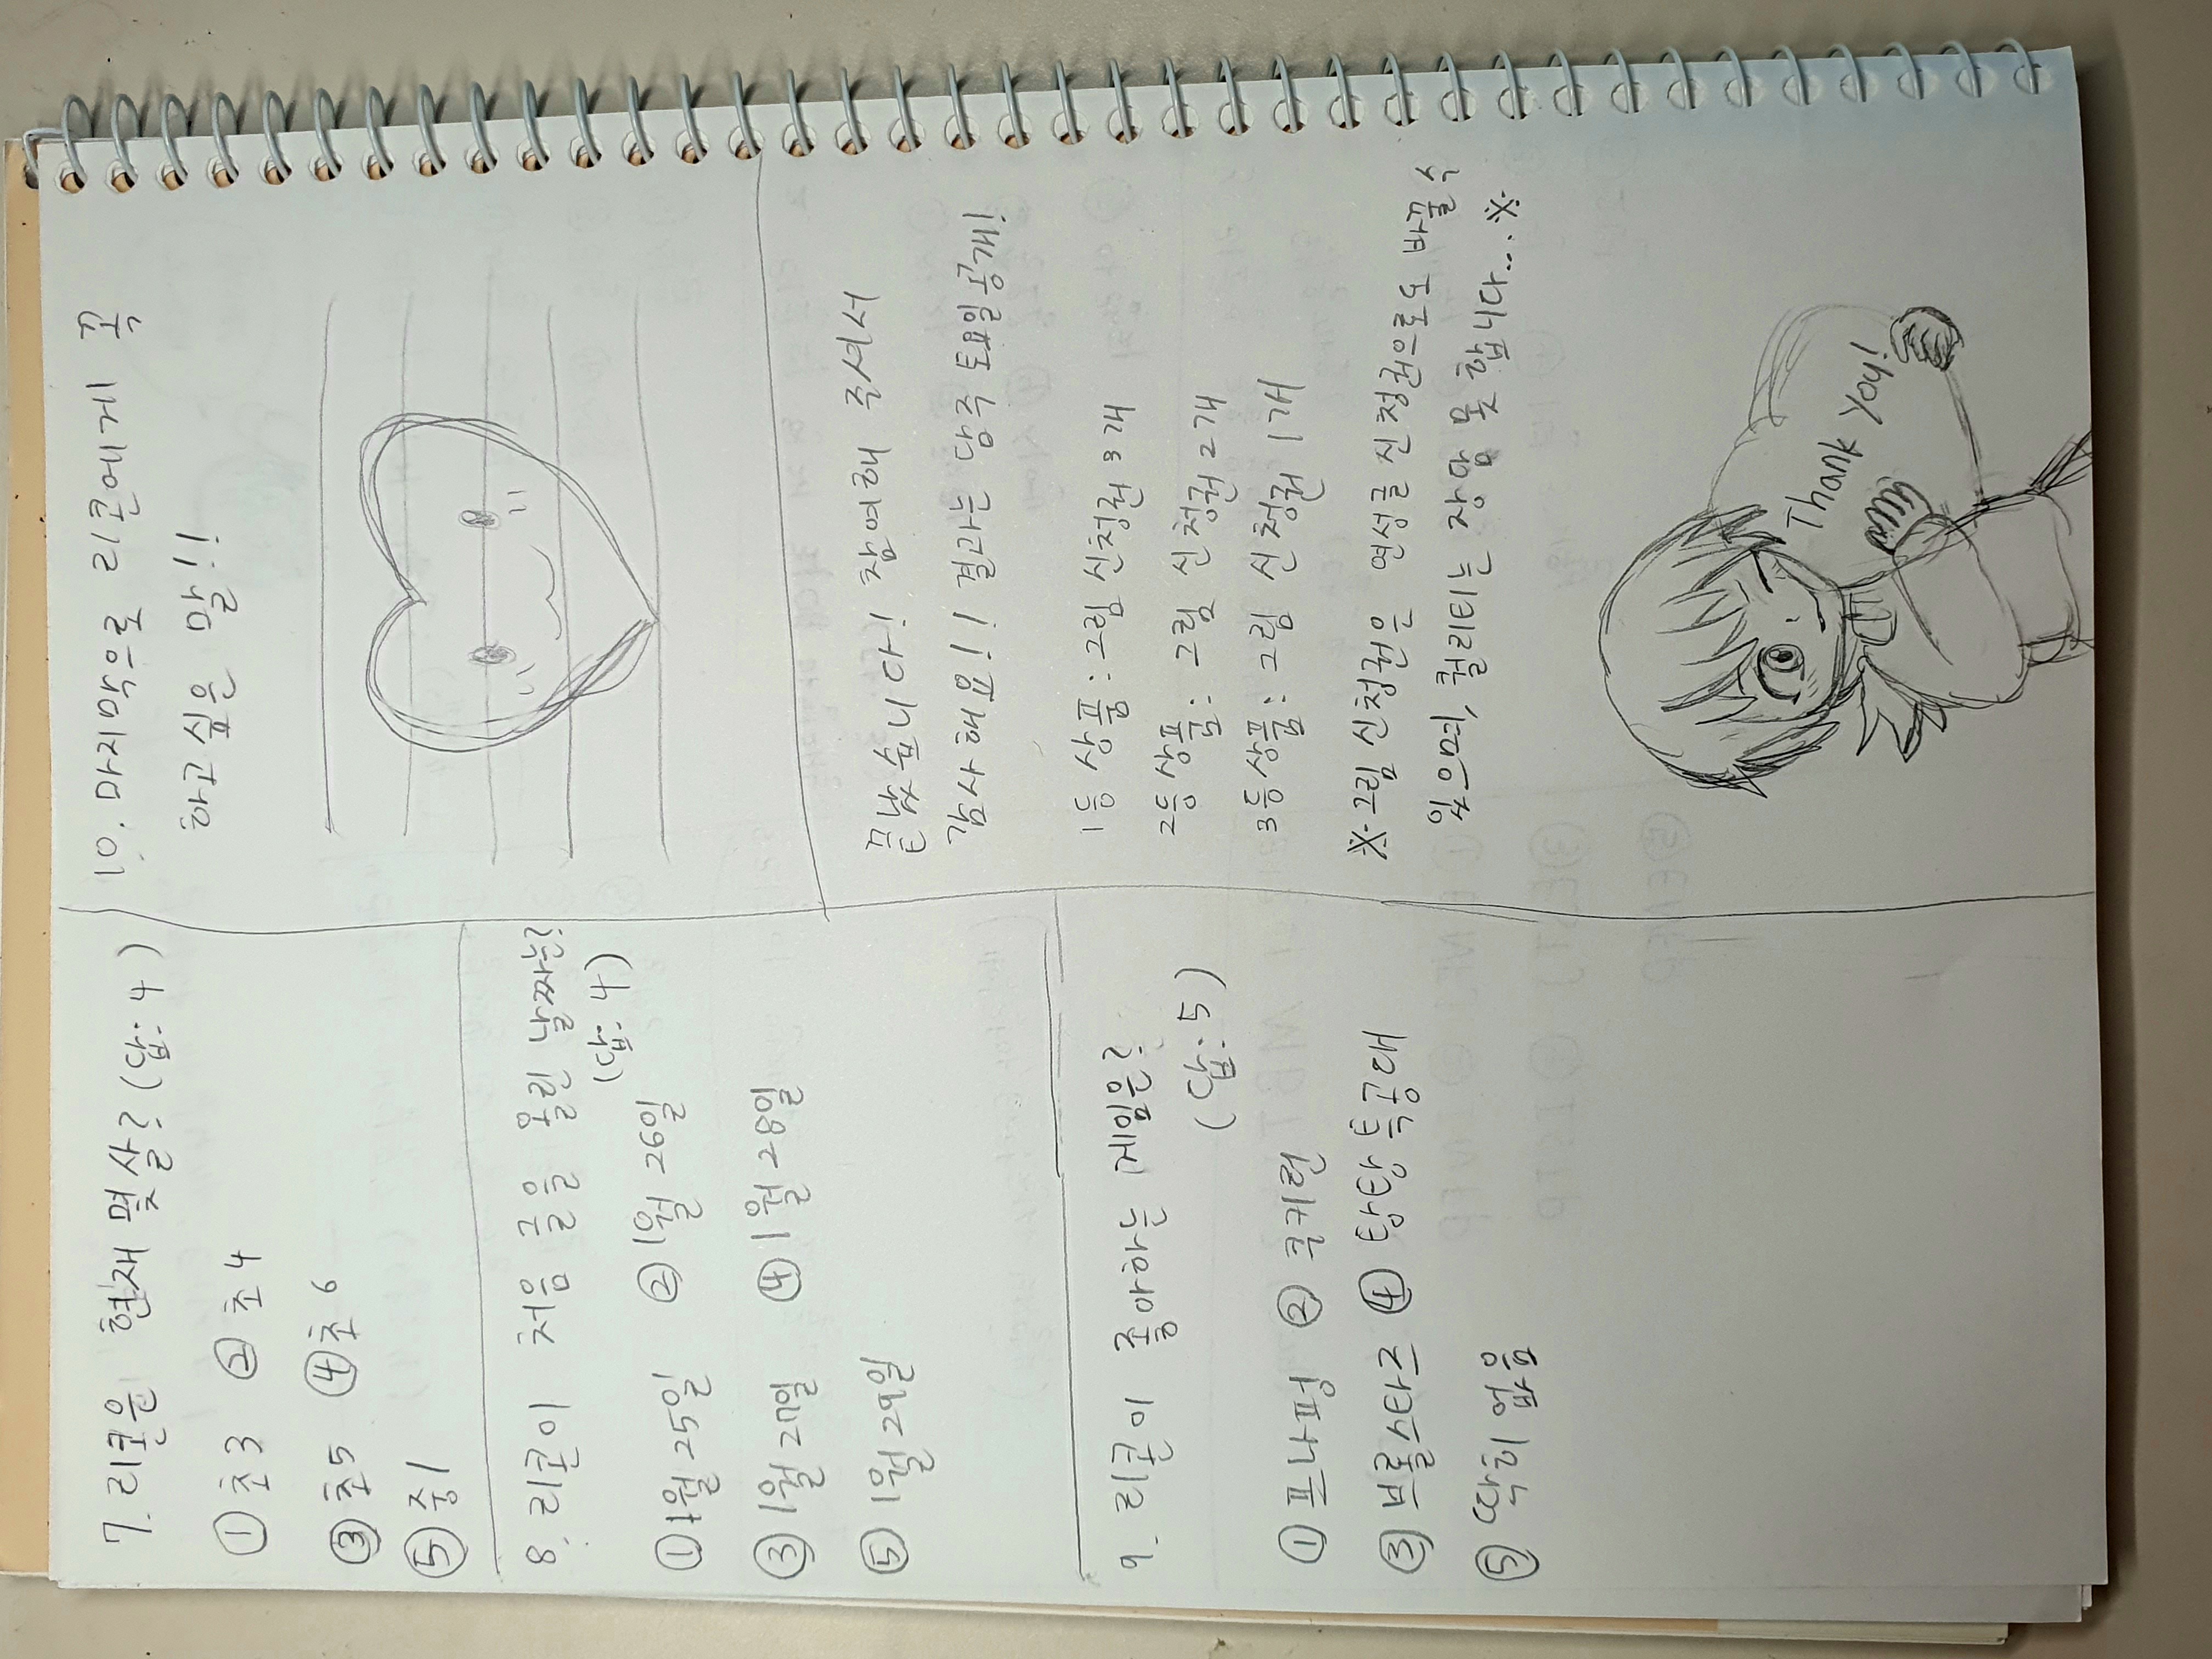 7. 리쿤은 현재 몇살? (답: 4)
① 초3 ② 초4
③ 초5 ④ 초6
⑤ 중1
8. 리쿤이 처음 글을 올린 날짜는?
(답: 4)
① 1월 25일 ② 1월 26일
③ 1월 27일 ④ 1월 28일
⑤ 1월 29일
9. 리쿤이 좋아하는 게임은?
(답: 5)
① 프나펑 ② 쿠키런
③ 브롤스타즈 ④ 탕탕특공대
⑤ 딱히 없음
10. 마지막으로 리쿤에게 꼭
하고싶은 말!!
끝났습니다! 참여해 주셔서
감사해요!! 결과는 담주 토요일 공개!
1등 상품: 그림 신청권 3개
2등 상품: 그림 신청권 2개
3등 상품: 그림 신청권 1개
※그림 신청권은 연성글 신청권으로도 바꿀 수
있으며, 퀄리티는 장담 못 합니다...※
Thank You!